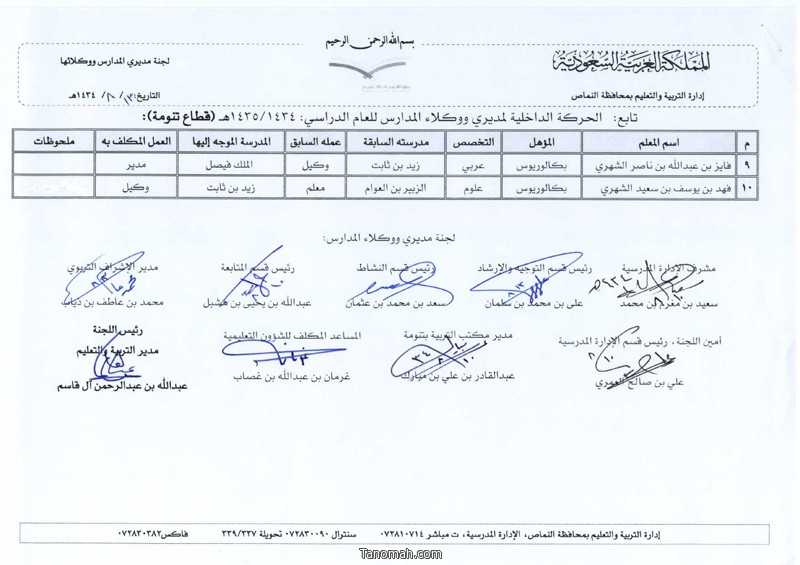 بسم الله الرحمن الرحيم
المملكة العربية السعودية
إدارة التربية والتعليم بمحافظة النماص
لجنة مديري المدارس ووكلائها
التاريخ: ١٣ / ٨ / ١٤٣٤هـ
تابع: الحركة الداخلية لمديري ووكلاء المدارس للعام الدراسي: ١٤٣٥/١٤٣٤هـ (قطاع تنومة):
م اسم المعلم المؤهل التخصص مدرسته السابقة عمله السابق المدرسة الموجه إليها العمل المكلف به ملحوظات
٩ فايز بن عبدالله بن ناصر الشهري بكالوريوس عربي زيد بن ثابت وكيل الملك فيصل مدير
١٠ فهد بن يوسف بن سعيد الشهري بكالوريوس علوم الزبير بن العوام معلم زيد بن ثابت وكيل
لجنة مديري ووكلاء المدارس:
مشرف الإدارة المدرسية رئيس قسم التوجيه والارشاد رئيس قسم النشاط رئيس قسم المتابعة مدير الإشراف التربوي
سعيد بن مفرح بن محمد علي بن محمد بن سلمان سعد بن محمد بن عثمان عبدالله بن يحيى بن هشبل محمد بن عاطف بن ذياب
أمين اللجنة، رئيس قسم الإدارة المدرسية مدير مكتب التربية بتنومة المساعد المكلف للشؤون التعليمية رئيس اللجنة
مدير التربية والتعليم
علي بن صالح العمري عبدالقادر بن علي بن مبارك غرمان بن عبدالله بن غصاب عبدالله بن عبدالرحمن آل قاسم
إدارة التربية والتعليم بمحافظة النماص، الإدارة المدرسية، ت مباشر ٠٧٢٨١٠٧١٤ سنترال ٠٧٢٨٣٠٠٩٠ تحويلة ٣٣٩/٣٣٧ فاكس٠٧٢٨٣٠٣٨٢
Tanomah.com